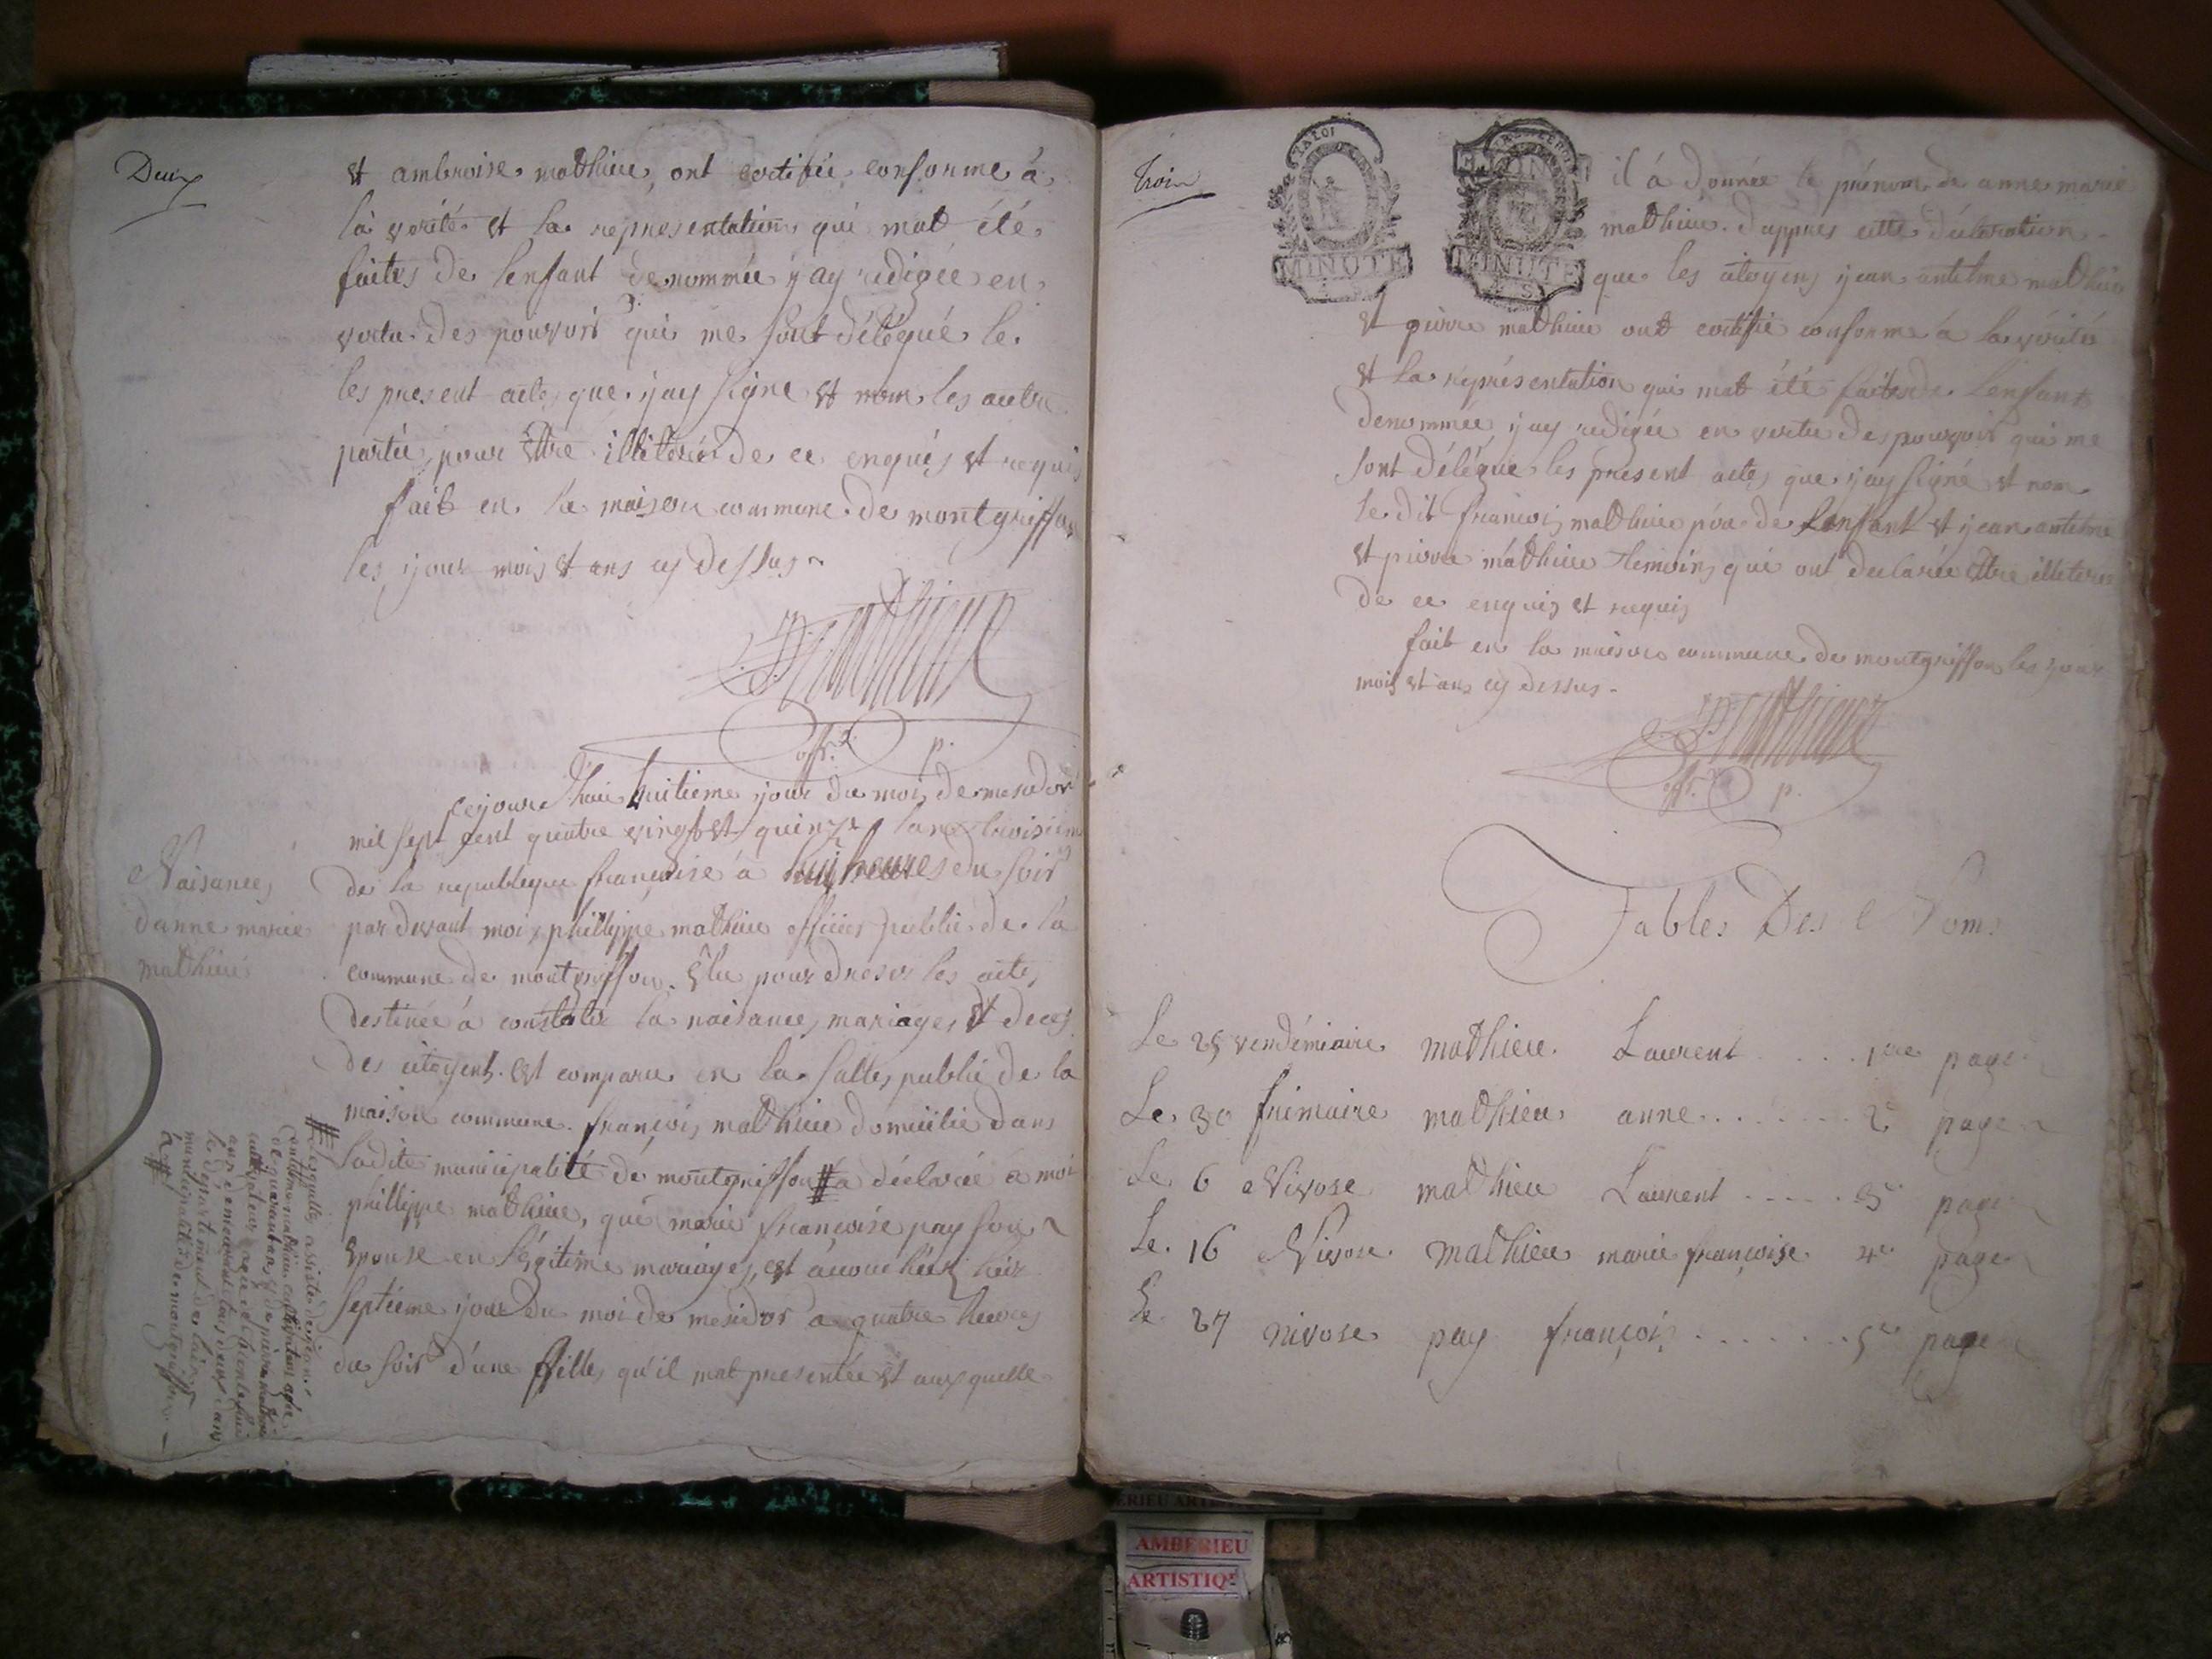 Deux
et ambroise mathieu, ont certifiée conforme à
la verité et la representation qui mat été
faites de lenfant denommée j'ay redigée en
vertu des pouvoir qui me sont délégué le
les present actes que j'ay signe et non les autre
partie, pour Ettre illiteré de ce enquis et requis
fait en la maison commune de montgriffon
les jour mois et ans cy dessus
off. p.
Naisances
danne marie
mathieu
cejourdhui huitieme jour du mois de mesidor
mil sept cent quatre vingt et quinze lane troisieme
de la republique francaise à huit heures du soir
par devant moi phillippe mathieu officier public de la
commune de montgriffon. Elu pour dreser les actes
destinée à constater la naisances, mariages et deces
des citoyens. est comparu en la salles public de la
maison commune. françois mathieu domicilié dans
ladite municipalité de montgriffon # a déclarée à moi
phillippe mathieu, que marie françoise pay son
epouse en légitime mariages, est acouchée hier
septieme jour du moi de mesidor à quatre heures
du soir d'une filles qu'il mat presentée et aux quelle
# lesquelle assisté de jean
antelme mathieu cultivateur agée
de quarant ans, et de pierre mathieu
cultivateur agée de trente huit
ans demeurant tous deux dans
le departement de lain
municipalité de montgriffon
à #
Trois
LA LOI
MINUTE
MINUTE
il à donnée le prénom de anne marie
mathieu. dappres cette déclaration
que les citoyens jean antelme mathieu
et pierre mathieu ont certifie conforme à la vérité
et la représentation qui mat été faites de lenfant
denommée j'ay redigée en vertu des pouvoir qui me
sont délégué les present actes que j'ay signé et non
le dit françois mathieu pere de lenfant et jean antelme
et pierre mathieu temoins qui ont declarée Ettre illeteré
de ce enquis et requis
fait en la maison commune de montgriffon les jour
mois et ans cy dessus
off. p.
Tables Des Noms
Le 25 vendémiaire mathieu Laurent .... 1ere page
Le 30 frimaire mathieu anne ....... 2e page
Le 6 Nivose mathieu Laurent ..... 3e page
Le 16 Nivose mathieu marie françoise 4e page
Le 27 nivose pay françois ....... 5e page
AMBERIEU
ARTISTIQ